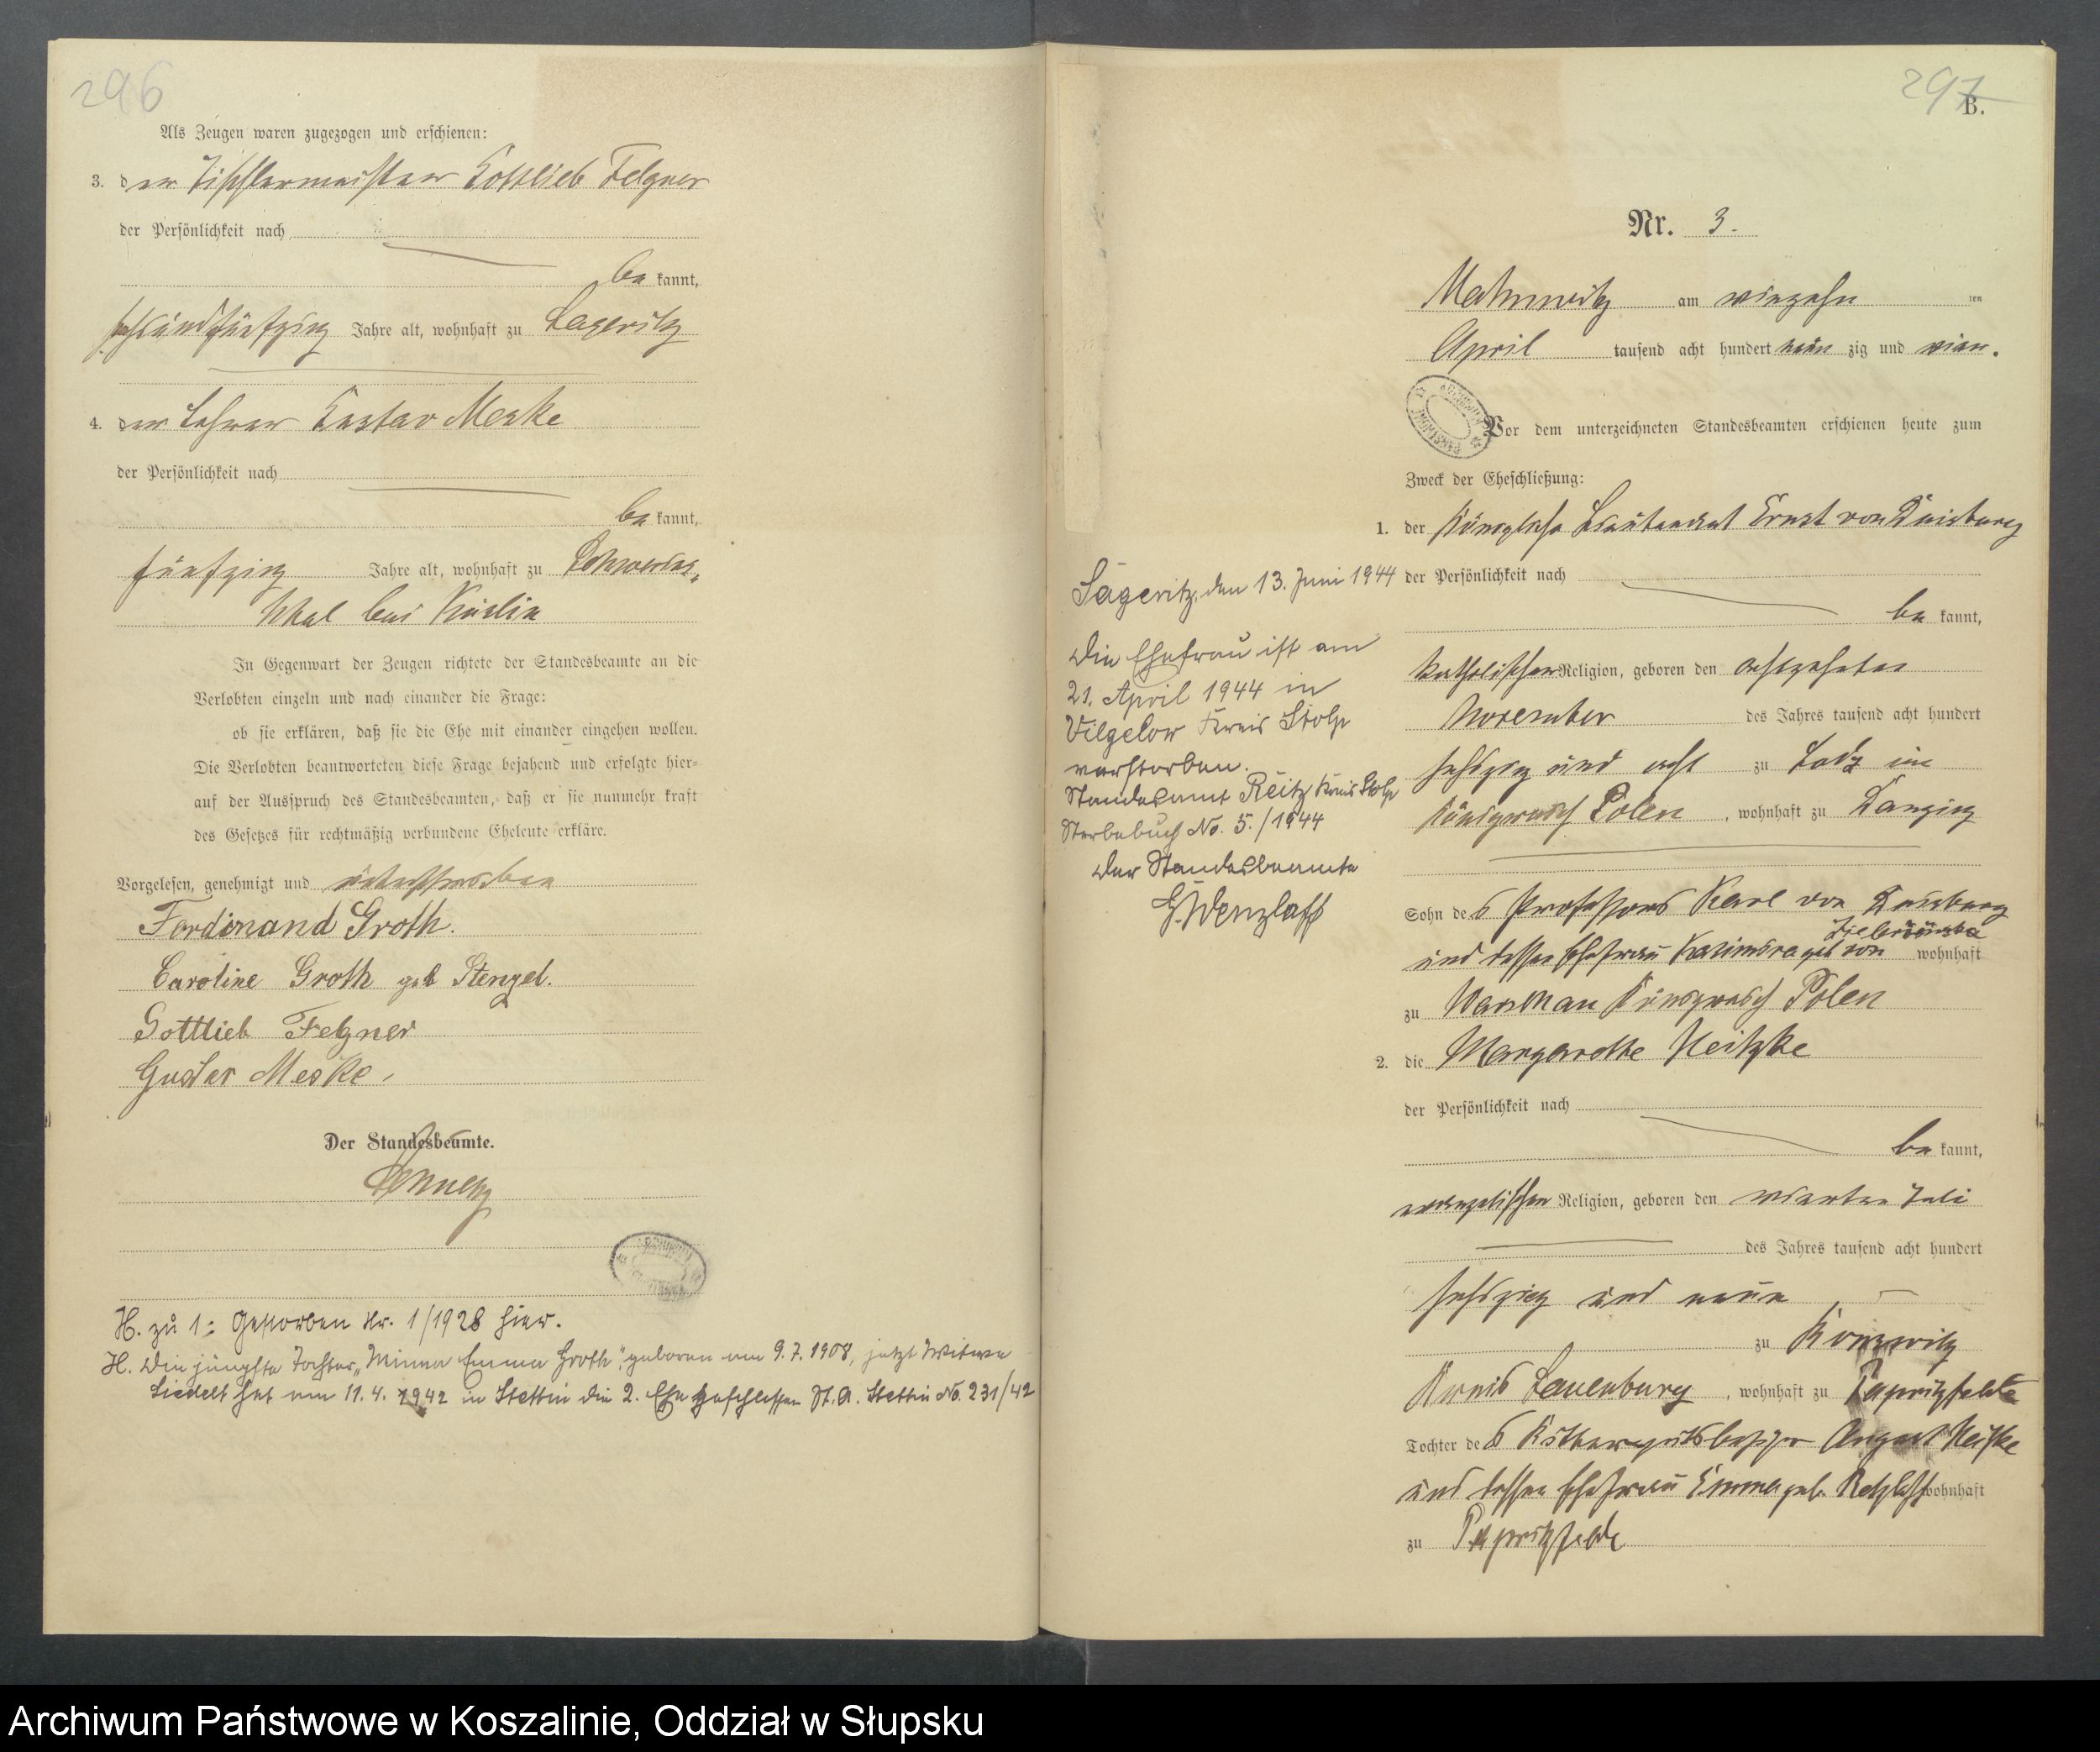 296
Als Zeugen waren zugezogen und erschienen:
3. der Tischlermeister Gottlieb Felgner
der Persönlichkeit nach
be kannt,
sechsundfünfzig Jahre alt, wohnhaft zu Lageritz
4. der Lehrer Gustav Meske
der Persönlichkeit nach
be kannt,
fünfzig Jahre alt, wohnhaft zu
bei
In Gegenwart der Zeugen richtete der Standesbeamte an die
Verlobten einzeln und nach einander die Frage:
ob sie erklären, daß sie die Ehe mit einander eingehen wollen.
Die Verlobten beantworteten diese Frage bejahend und erfolgte hier-
auf der Ausspruch des Standesbeamten, daß er sie nunmehr kraft
des Gesetzes für rechtmäßig verbundene Eheleute erkläre.
Vorgelesen, genehmigt und unterschrieben
Ferdinand Groth.
Caroline Groth geb Stengel.
Gottlieb Felgner
Gustav Meske.
Der Standesbeamte.
H. zu 1: Gestorben Nr. 1/1928 hier.
H. Die jüngste Tochter „Minna Emma Groth", geboren am 9.7.1908, jetzt Witwe
Liedelt hat am 11.4.1942 in Stettin die 2. Ehe geschlossen St.A. Stettin No. 231/42
297
B.
Nr. 3.
Mahnwitz am vierzehn ten
April tausend acht hundert neun zig und vier.
Vor dem unterzeichneten Standesbeamten erschienen heute zum
Zweck der Eheschließung:
1. der Königliche Lieutenant Ernst von Duisburg
der Persönlichkeit nach
be kannt,
katholischer Religion, geboren den achtzehnten
November des Jahres tausend acht hundert
sechszig und acht zu Lodz im
Königreich Polen, wohnhaft zu Danzig
Sohn des Professors Karl von Duisburg
und dessen Ehefrau Kasimira geb von wohnhaft
zu Warschau Königreich Polen
2. die Margarethe Neitzke
der Persönlichkeit nach
be kannt,
evangelischer Religion, geboren den vierten Juli
des Jahres tausend acht hundert
sechszig und neun
zu
Kreis Lauenburg, wohnhaft zu Papritzfelde
Tochter des Rittergutsbesitzer August Neitzke
und dessen Ehefrau Emma geb. Retzlaff wohnhaft
zu Papritzfelde
Sageritz, den 13. Juni 1944
Die Ehefrau ist am
21. April 1944 in
Vilgelow Kreis Stolp
verstorben.
Standesamt Reitz Kreis Stolp
Sterbebuch No. 5./1944
Der Standesbeamte
G. Wenzlaff
Archiwum Państwowe w Koszalinie, Oddział w Słupsku